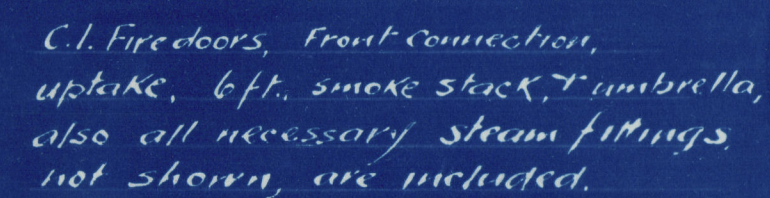 C.I. Fire doors, Front Connection,
uptake, 6 ft., smoke stack, & umbrella,
also all necessary steam fittings,
not shown, are included.